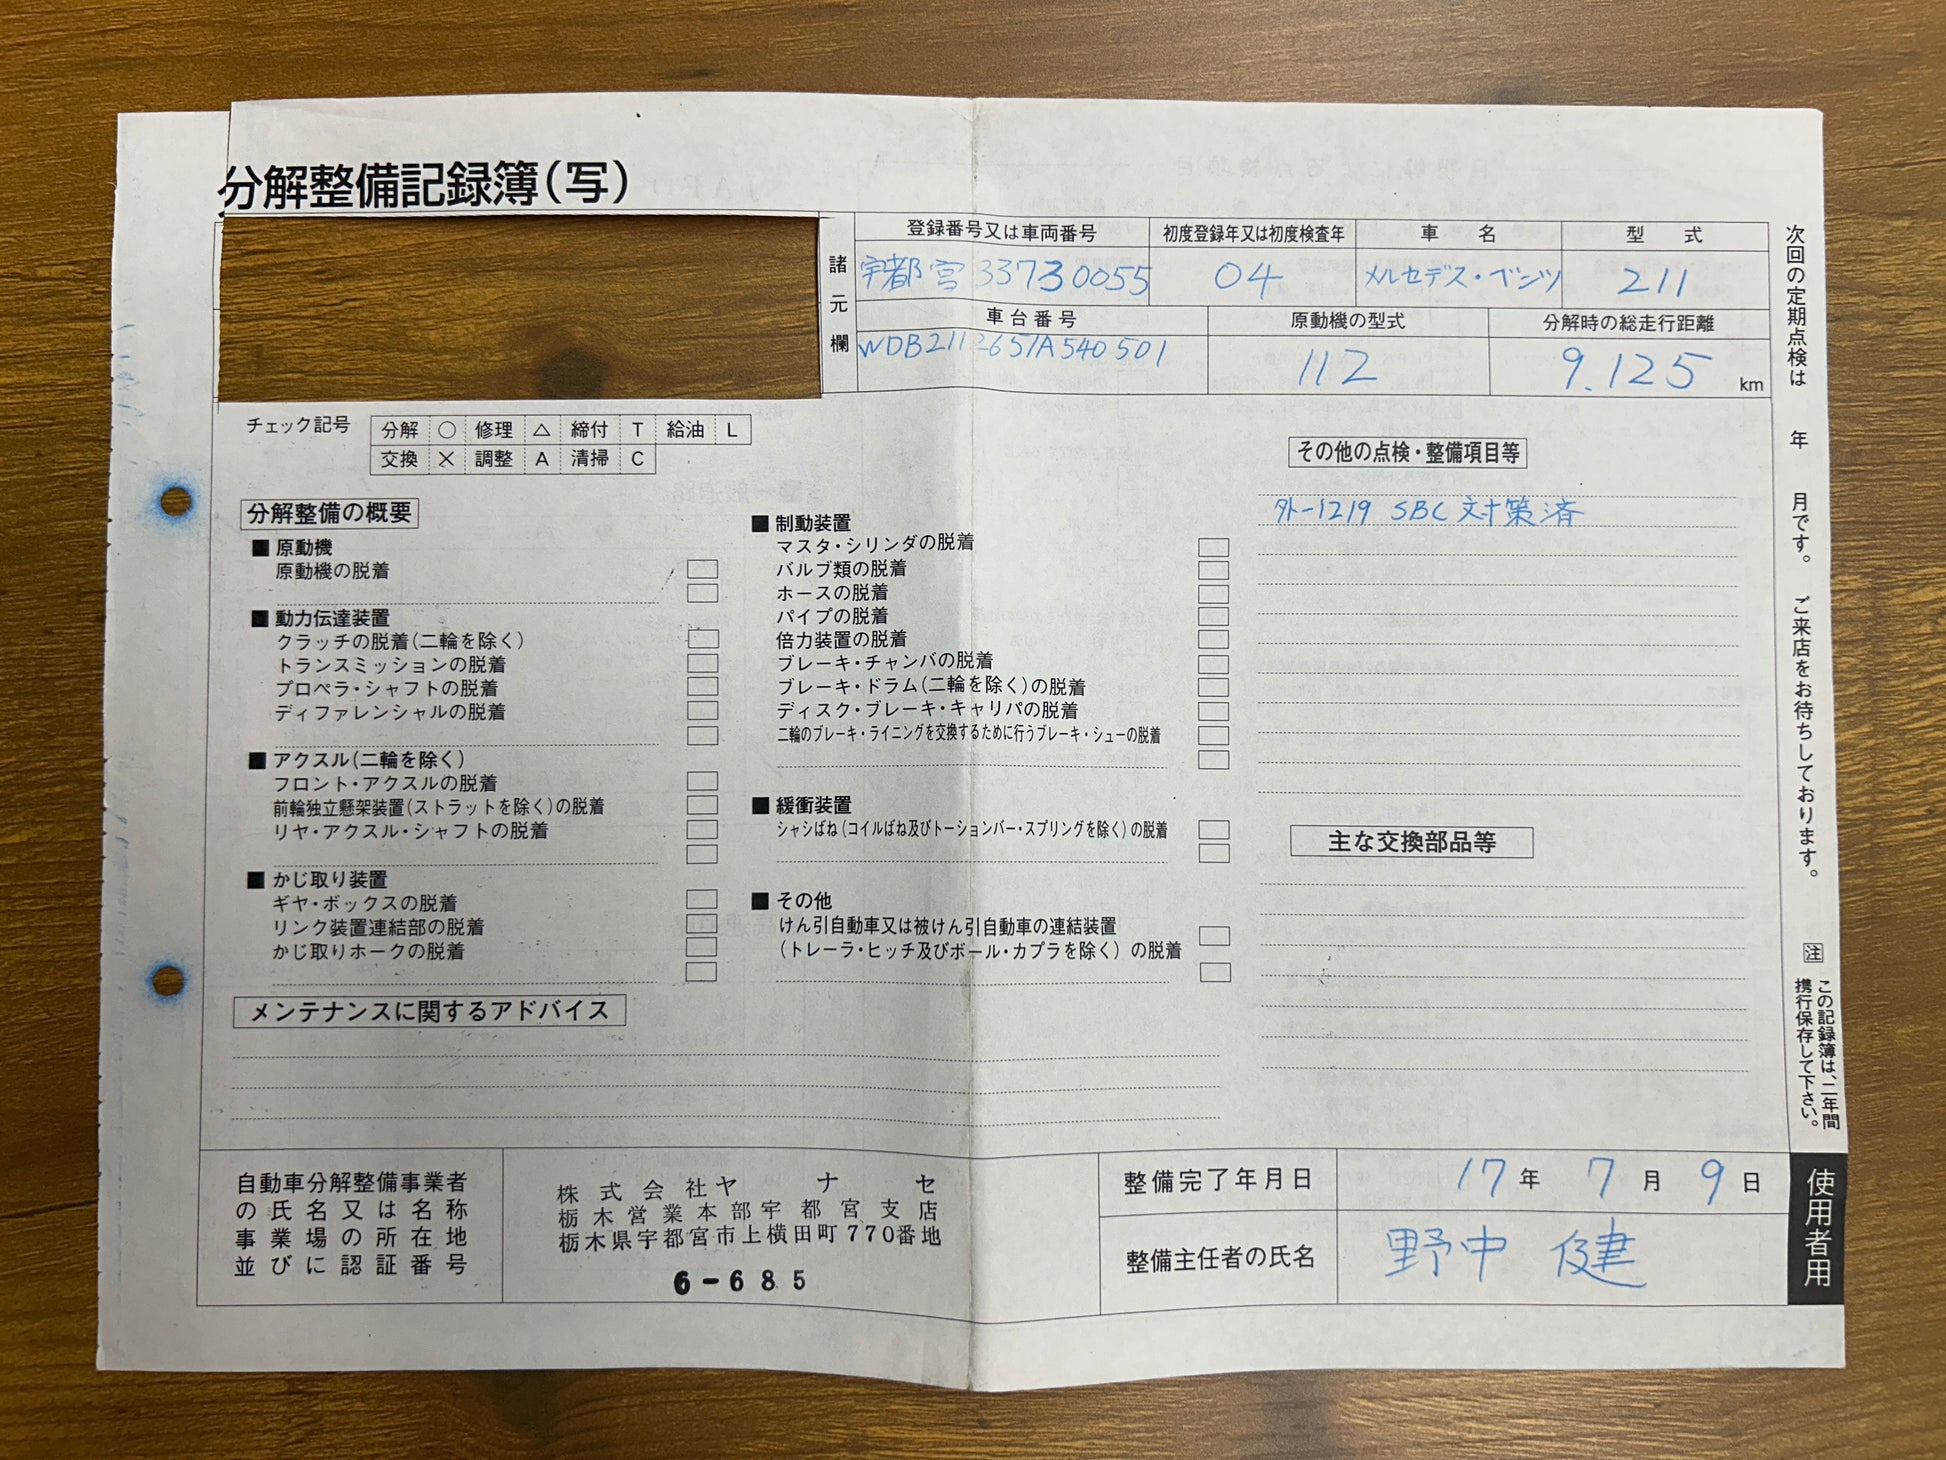 分解整備記録簿(写)
諸元欄
登録番号又は車両番号
初度登録年又は初度検査年
車名
型式
宇都宮 337ヲ0055
04
メルセデス・ベンツ
211
車台番号
原動機の型式
分解時の総走行距離
WDB2112651A540501
112
9.125 km
チェック記号
分解 ○ 修理 △ 締付 T 給油 L
交換 × 調整 A 清掃 C
分解整備の概要
■ 原動機
原動機の脱着
■ 動力伝達装置
クラッチの脱着(二輪を除く)
トランスミッションの脱着
プロペラ・シャフトの脱着
ディファレンシャルの脱着
■ アクスル(二輪を除く)
フロント・アクスルの脱着
前輪独立懸架装置(ストラットを除く)の脱着
リヤ・アクスル・シャフトの脱着
■ かじ取り装置
ギヤ・ボックスの脱着
リンク装置連結部の脱着
かじ取りホークの脱着
■ 制動装置
マスタ・シリンダの脱着
バルブ類の脱着
ホースの脱着
パイプの脱着
倍力装置の脱着
ブレーキ・チャンバの脱着
ブレーキ・ドラム(二輪を除く)の脱着
ディスク・ブレーキ・キャリパの脱着
二輪のブレーキ・ライニングを交換するために行うブレーキ・シューの脱着
■ 緩衝装置
シャシばね(コイルばね及びトーションバー・スプリングを除く)の脱着
■ その他
けん引自動車又は被けん引自動車の連結装置
(トレーラ・ヒッチ及びボール・カプラを除く)の脱着
その他の点検・整備項目等
外-1219 SBC対策済
主な交換部品等
メンテナンスに関するアドバイス
自動車分解整備事業者
の氏名又は名称
事業場の所在地
並びに認証番号
株式会社ヤナセ
栃木営業本部宇都宮支店
栃木県宇都宮市上横田町770番地
6-685
整備完了年月日
17年 7月 9日
整備主任者の氏名
野中 健
次回の定期点検は 年 月です。ご来店をお待ちしております。
注 この記録簿は、二年間
携行保存して下さい。
使用者用